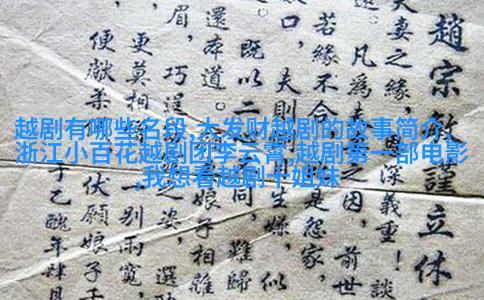 越剧有哪些名段,大发财越剧的故事简介,
浙江小百花越剧团李云霄,越剧第一部电影
,我想看越剧十姐妹
趙宗 謹立休
夫妻之緣, 深義重!談
凡為夫 之因,前世
若緣不合, 是怨家,
口,夫則 生嫌,似
既以二 同,難歸
還本道。 娘子相離
眉,巧逞 之姿,選
更莫相 一別兩寬,
便獻柔 伏願娘子千
于乙醜年肆月